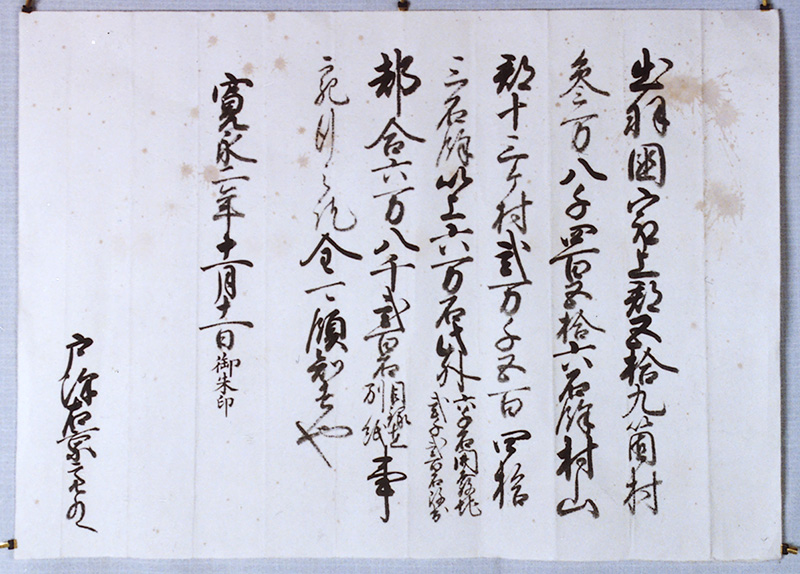 出羽國最上郡五拾九箇村
参万八千四百五拾六石餘村山
郡十三ケ村貳万千五百四拾
三石餘以上六万石此外六千石開發地
貳千貳百石
都合六万八千貳百石目録在別紙事
充行之訖全可領知者也
寛永二年十二月十一日御朱印
戸澤右京亮との